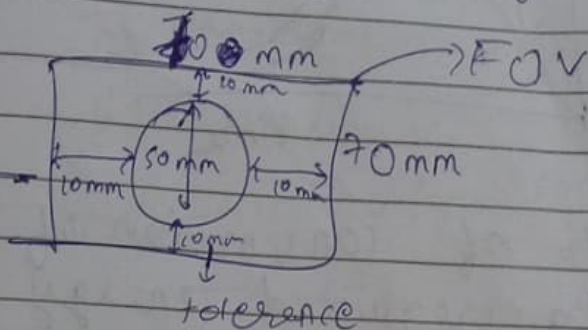 mm
FOV
10mm
50mm
70mm
10mm
10mm
10mm
tolerence